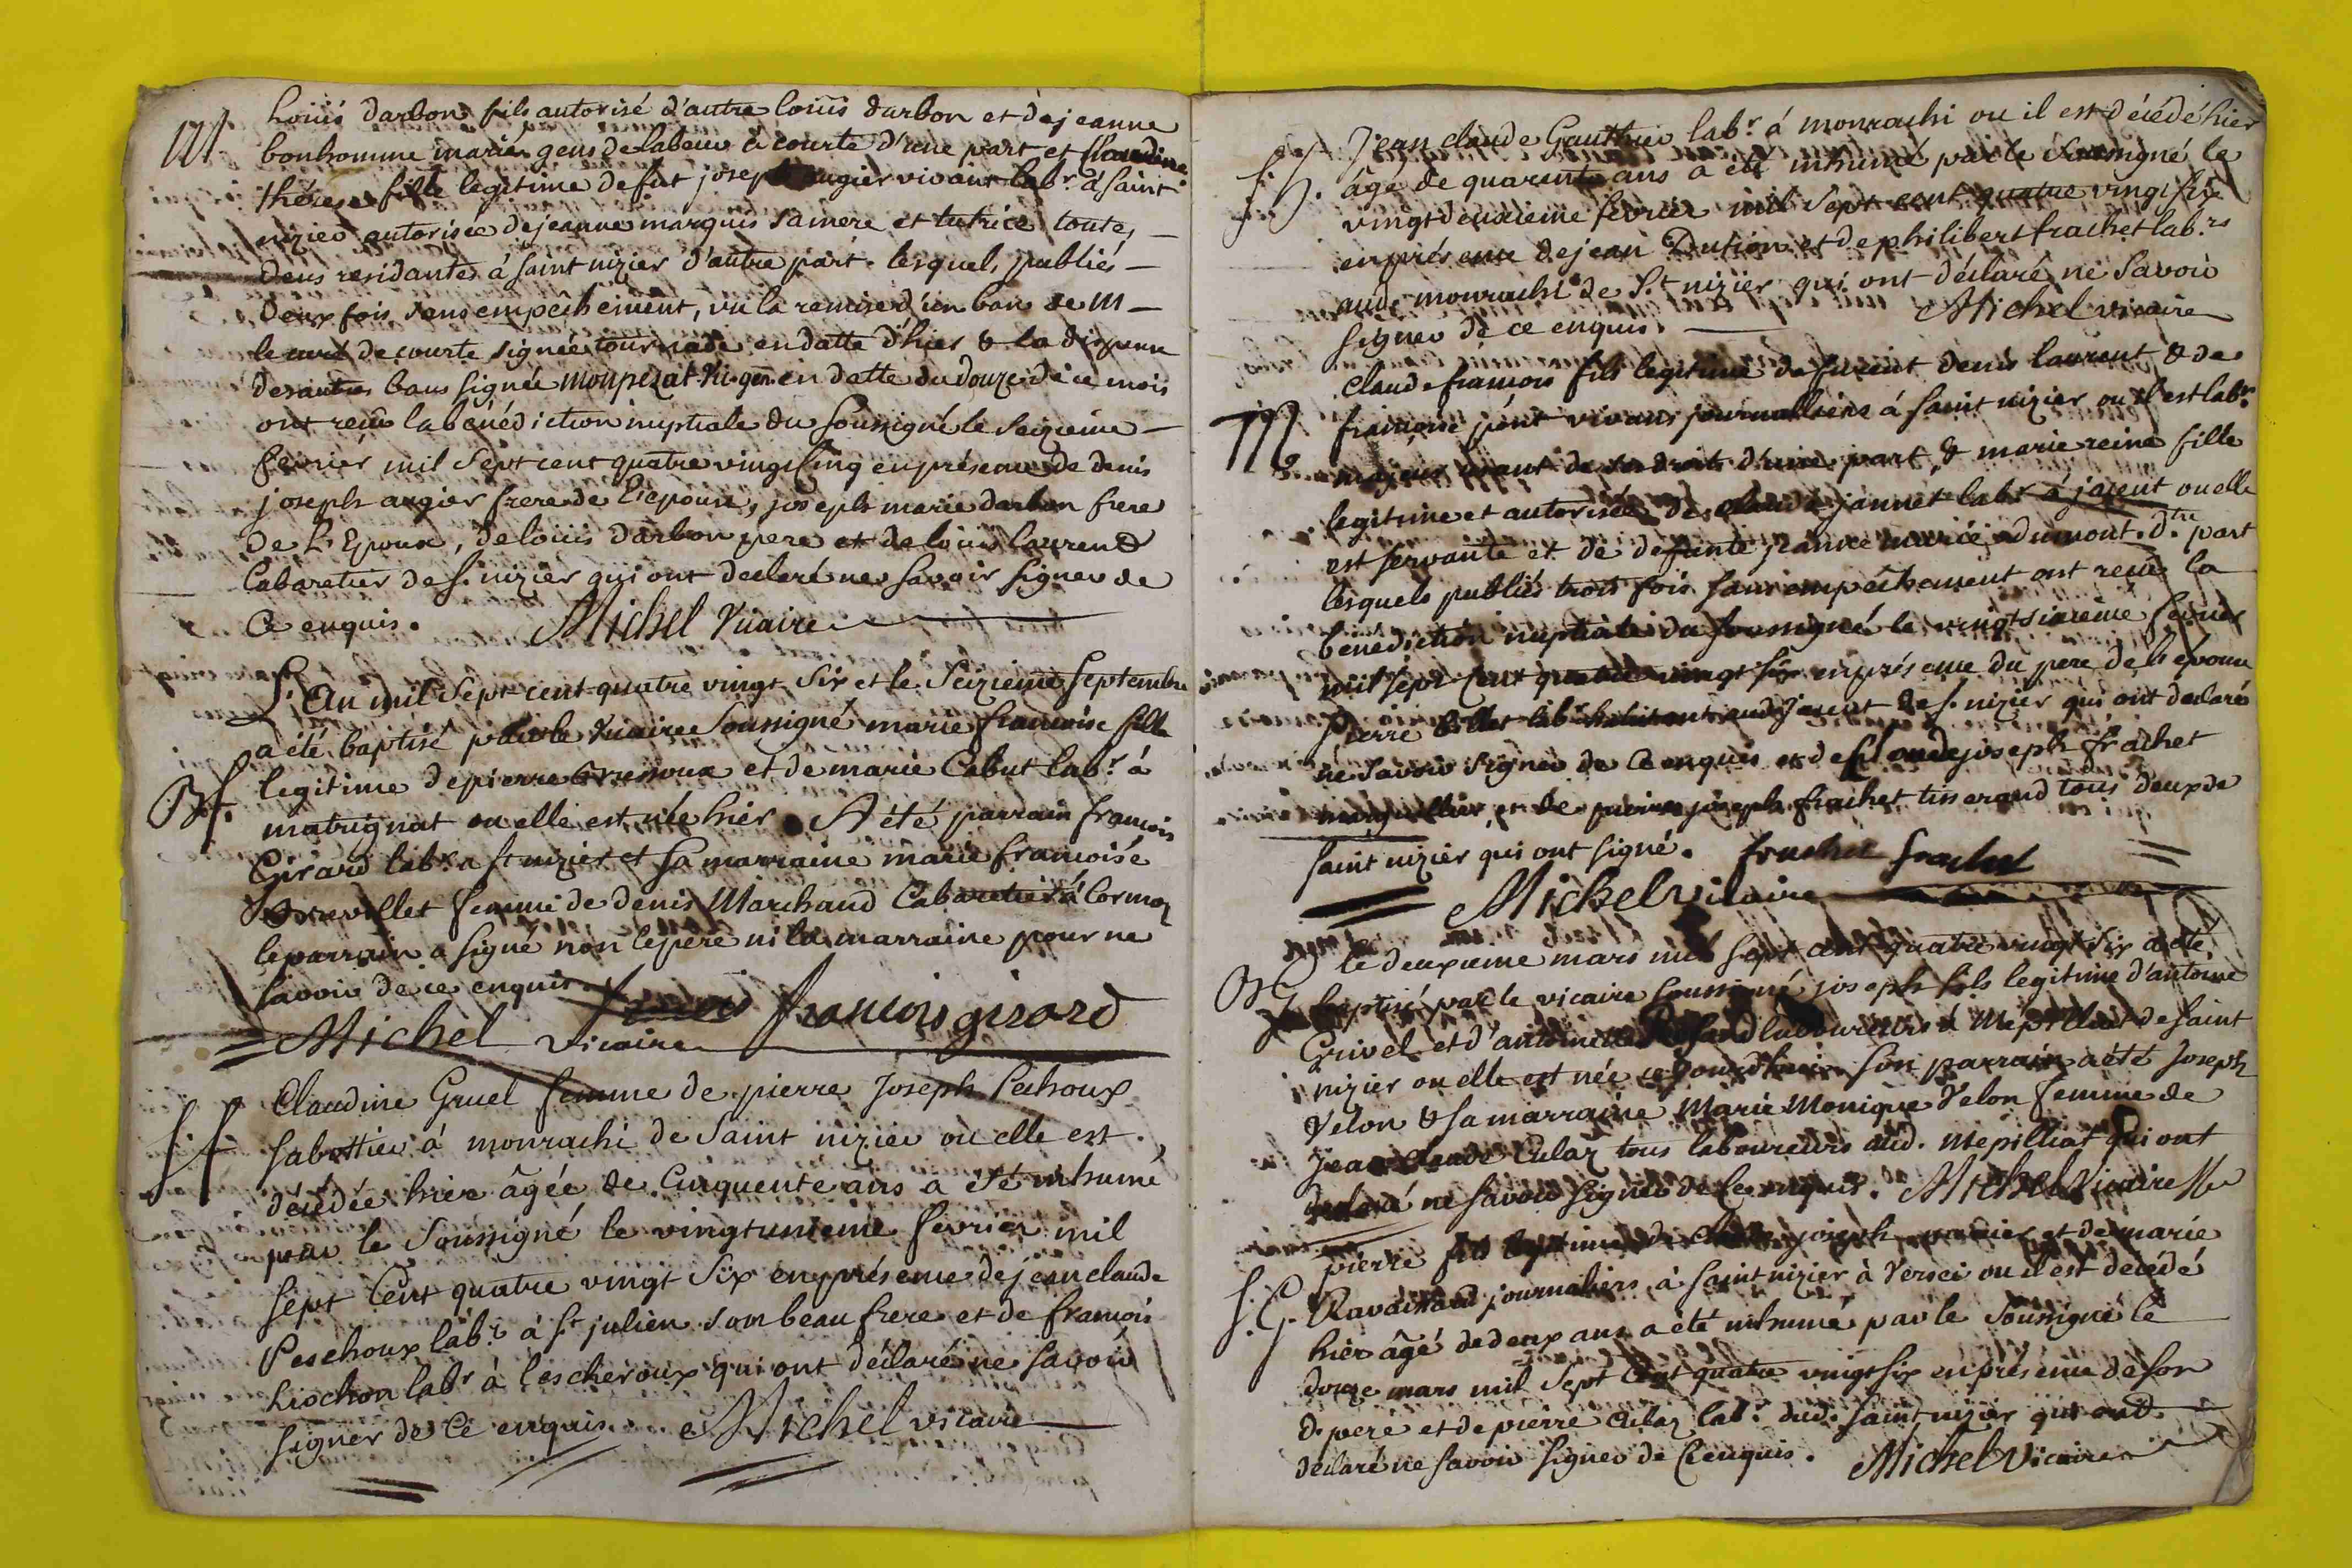 M
Louis darbon fils autorisé d'autre louis darbon et de jeanne
bonhomme mariés gens de labeur à courte d'une part et claudine
thérese fille legitime de fut joseph augier vivant labr. à saint
nizier autorisée de jeanne marquis sa mere et tutrice toutes
deux residantes à saint nizier d'autre part. lesquels publiés
deux fois sans empêchement, vu la remise d'un ban de M
le curé de courte signée tournade en datte d'hier & la dispense
des autres bans signée monpezat vi. gen. en datte du douze de ce mois
ont reçu la bénédiction nuptiale du soussigné le seizieme
fevrier mil sept cent quatre vingt six en présence de denis
joseph augier frere de l'epouse, joseph marie darbon frere
de l'epoux, de louis darbon pere et de louis laurend
cabaretier de st. nizier qui ont declaré ne savoir signer de
ce enquis. Michel vicaire
L'an mil sept cent quatre vingt six et le seizieme septembre
a été baptisé par le vicaire soussigné marie françoise fille
Bf.
legitime de pierre et de marie Cabut labr. à
matrignat ou elle est née hier A été parrain françois
Girard labr. a st nizier et sa marraine marie françoise
femme de denis Marchand Cabaretier à Cormoz
le parrain a signé non le pere ni la marraine pour ne
savoir de ce enquis. françois girard
Michel vicaire
Sf
Claudine Gruel femme de pierre Joseph Pechoux
sabottier à monrachi de saint nizier ou elle est
décédée hier âgée de cinquente ans a été inhumé
par le soussigné le vingtunieme fevrier mil
sept cent quatre vingt six en présence de jean claude
Peschoux labr. à st julien son beau frere et de françois
hiochon labr à lescheroux qui ont déclaré ne savoir
signer de ce enquis. Michel vicaire
Jean claude Gauthier labr. à monrachi ou il est décédé hier
âgé de quarente ans a été inhumé par le soussigné le
vingtdeuxieme fevrier mil sept cent quatre vingt six
en présence de jean Dution et de philibert frachet labrs
aude monrachi de st nizier qui ont déclaré ne savoir
signer de ce enquis. Michel vicaire
M
Claude françois fils legitime de furent denis laurent & de
françoise vivans journalliers à saint nizier ou il est labr.
majeur usant de ses droits d'une part, & marie reine fille
legitime et autorisée de claude jannet labr à jaient ou elle
est servante et de defunte jeanne marie dumont. d'tre part
lesquels publiés trois fois sans empêchement ont reçu la
bénédiction nuptiale du soussigné le vingtsixieme fevrier
mil sept cent quatre vingt six en présence du pere de l'epouse
pierre labr habitant aud. jaient de st. nizier qui ont declaré
ne savoir signer de ce enquis et de claude joseph frachet
marguillier et de pierre joseph frachet tisserand tous deux de
saint nizier qui ont signé. frachet frachet
Michel vicaire
BG
le deuxieme mars mil sept cent quatre vingt six a été
baptisé par le vicaire soussigné joseph fils legitime d'antoine
Grivel et d'antoinette laboureurs à Mépilliat de saint
nizier ou elle est née son parrain a été Joseph
Velon & sa marraine Marie Monique Velon femme de
Jean claude Culaz tous laboureurs aud. Mepilliat qui ont
declaré ne savoir signer de ce enquis. Michel vicaire
S.G.
pierre fils legitime de claude joseph et de marie
Ravaissard journaliers à saint nizier à Versei ou il est decédé
hier âgé de deux ans a été inhumé par le soussigné le
douze mars mil sept cent quatre vingt six en présence de son
d. pere et de pierre culaz labr. dud. saint nizier qui ont
déclaré ne savoir signer de ce enquis. Michel vicaire